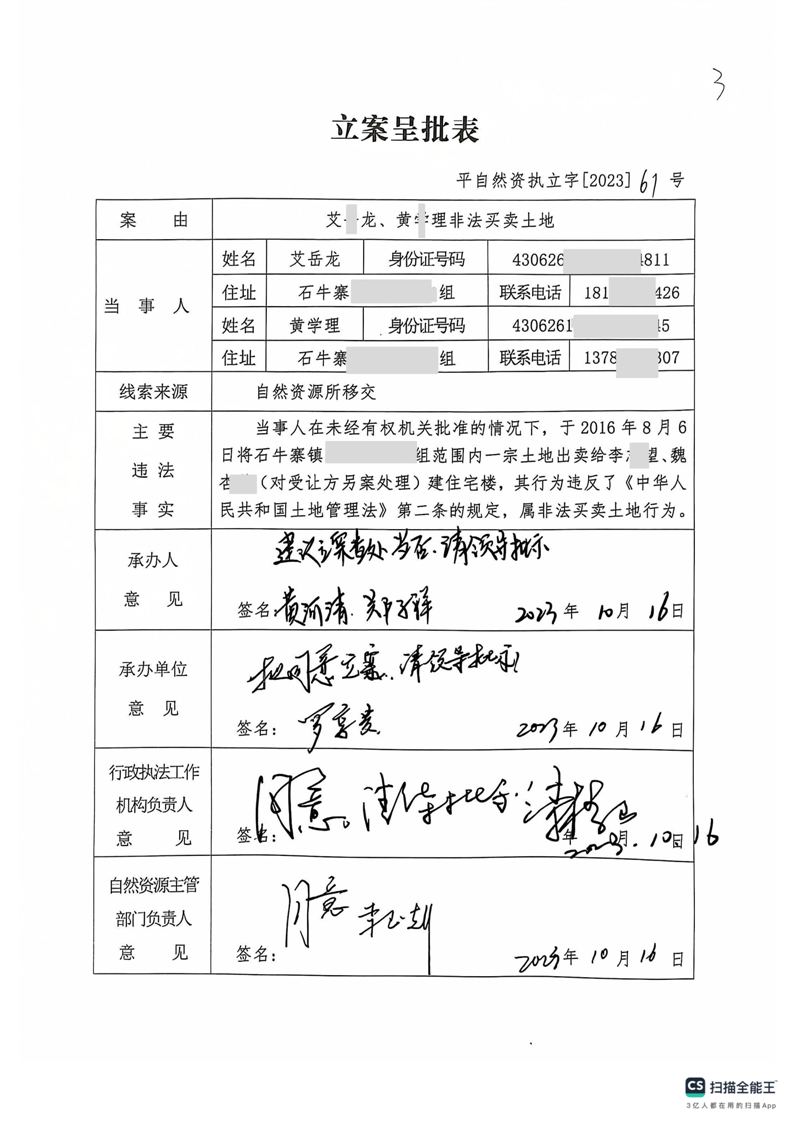 3
立案呈批表
平自然资执立字[2023] 61 号
案 由 艾 龙、黄 理非法买卖土地
当 事 人
姓名 艾岳龙 身份证号码 430626 4811
住址 石牛寨 组 联系电话 181 426
姓名 黄学理 身份证号码 4306261 5
住址 石牛寨 组 联系电话 1378 307
线索来源 自然资源所移交
主 要
违 法
事 实
当事人在未经有权机关批准的情况下,于 2016 年 8 月 6
日将石牛寨镇 组范围内一宗土地出卖给李 望、魏
(对受让方另案处理)建住宅楼,其行为违反了《中华人
民共和国土地管理法》第二条的规定,属非法买卖土地行为。
承办人
意 见
建议立案查处当否,请领导批示
签名: 2023 年 10 月 16 日
承办单位
意 见
拟同意立案,请领导批示
签名: 2023 年 10 月 16 日
行政执法工作
机构负责人
意 见
同意。
签名: 年 月 日
2023.10 16
自然资源主管
部门负责人
意 见
同意
签名: 2023 年 10 月 16 日
CS 扫描全能王
3亿人都在用的扫描App